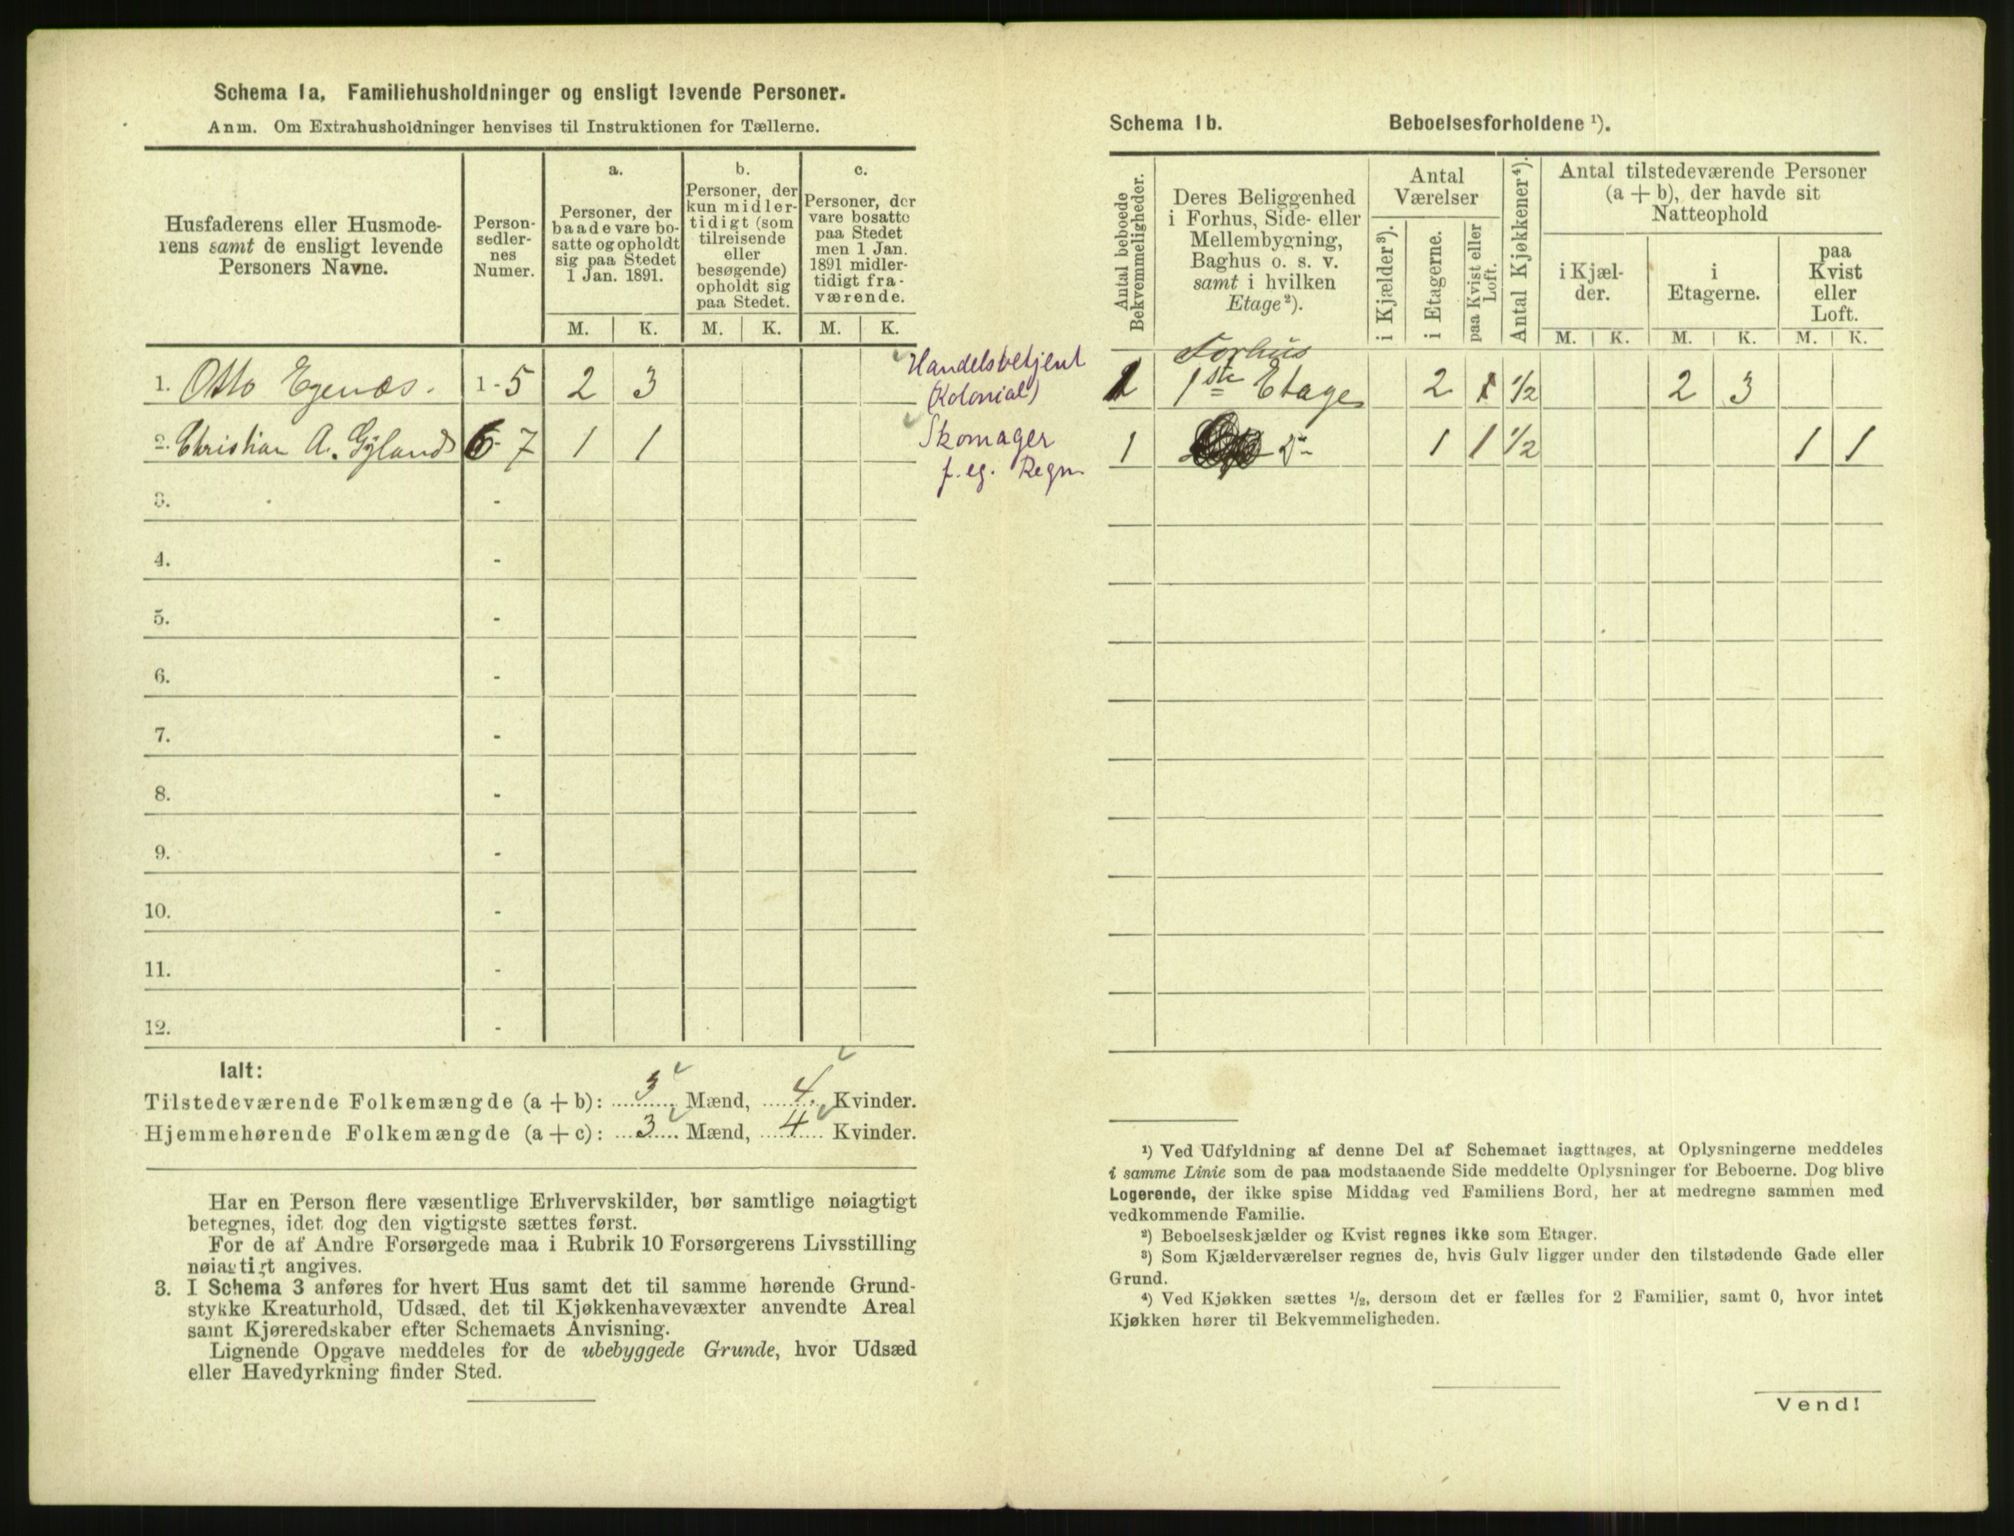 Schema 1a. Familiehusholdninger og ensligt levende Personer.
Anm. Om Extrahusholdninger henvises til Instruktionen for Tællerne.
Husfaderens eller Husmoderens samt de ensligt levende Personers Navne.
Personsedlernes Numer.
a.
Personer, der baade vare bosatte og opholdt sig paa Stedet 1 Jan. 1891.
b.
Personer, der kun midlertidigt (som tilreisende eller besøgende) opholdt sig paa Stedet.
c.
Personer, der vare bosatte paa Stedet men 1 Jan. 1891 midlertidigt fraværende.
M. K. M. K. M. K.
1. Otto Egenæs. 1-5 2 3 Handelsbetjent (Kolonial)
2. Christian A. Gyland 6-7 1 1 Skomager f. eg. Regn
3. -
4. -
5. -
6. -
7. -
8. -
9. -
10. -
11. -
12. -
Ialt:
Tilstedeværende Folkemængde (a + b): 3 Mænd, 4 Kvinder.
Hjemmehørende Folkemængde (a + c): 3 Mænd, 4 Kvinder.
Har en Person flere væsentlige Erhvervskilder, bør samtlige nøiagtigt
betegnes, idet dog den vigtigste sættes først.
For de af Andre Forsørgede maa i Rubrik 10 Forsørgerens Livsstilling
nøiagtigt angives.
3. I Schema 3 anføres for hvert Hus samt det til samme hørende Grund-
stykke Kreaturhold, Udsæd, det til Kjøkkenhavevæxter anvendte Areal
samt Kjøreredskaber efter Schemaets Anvisning.
Lignende Opgave meddeles for de ubebyggede Grunde, hvor Udsæd
eller Havedyrkning finder Sted.
Schema 1b. Beboelsesforholdene ¹).
Antal beboede Bekvemmeligheder.
Deres Beliggenhed i Forhus, Side- eller Mellembygning, Baghus o. s. v. samt i hvilken Etage²).
Antal Værelser
i Kjælder³).
i Etagerne.
paa Kvist eller Loft.
Antal Kjøkkener⁴).
Antal tilstedeværende Personer (a + b), der havde sit Natteophold
i Kjælder.
i Etagerne.
paa Kvist eller Loft.
M. K. M. K. M. K.
Forhus
1 1ste Etage 2 1 1/2 2 3
1 D- 1 1 1/2 1 1
¹) Ved Udfyldning af denne Del af Schemaet iagttages, at Oplysningerne meddeles
i samme Linie som de paa modstaaende Side meddelte Oplysninger for Beboerne. Dog blive
Logerende, der ikke spise Middag ved Familiens Bord, her at medregne sammen med
vedkommende Familie.
²) Beboelseskjælder og Kvist regnes ikke som Etager.
³) Som Kjælderværelser regnes de, hvis Gulv ligger under den tilstødende Gade eller
Grund.
⁴) Ved Kjøkken sættes 1/2, dersom det er fælles for 2 Familier, samt 0, hvor intet
Kjøkken hører til Bekvemmeligheden.
Vend!